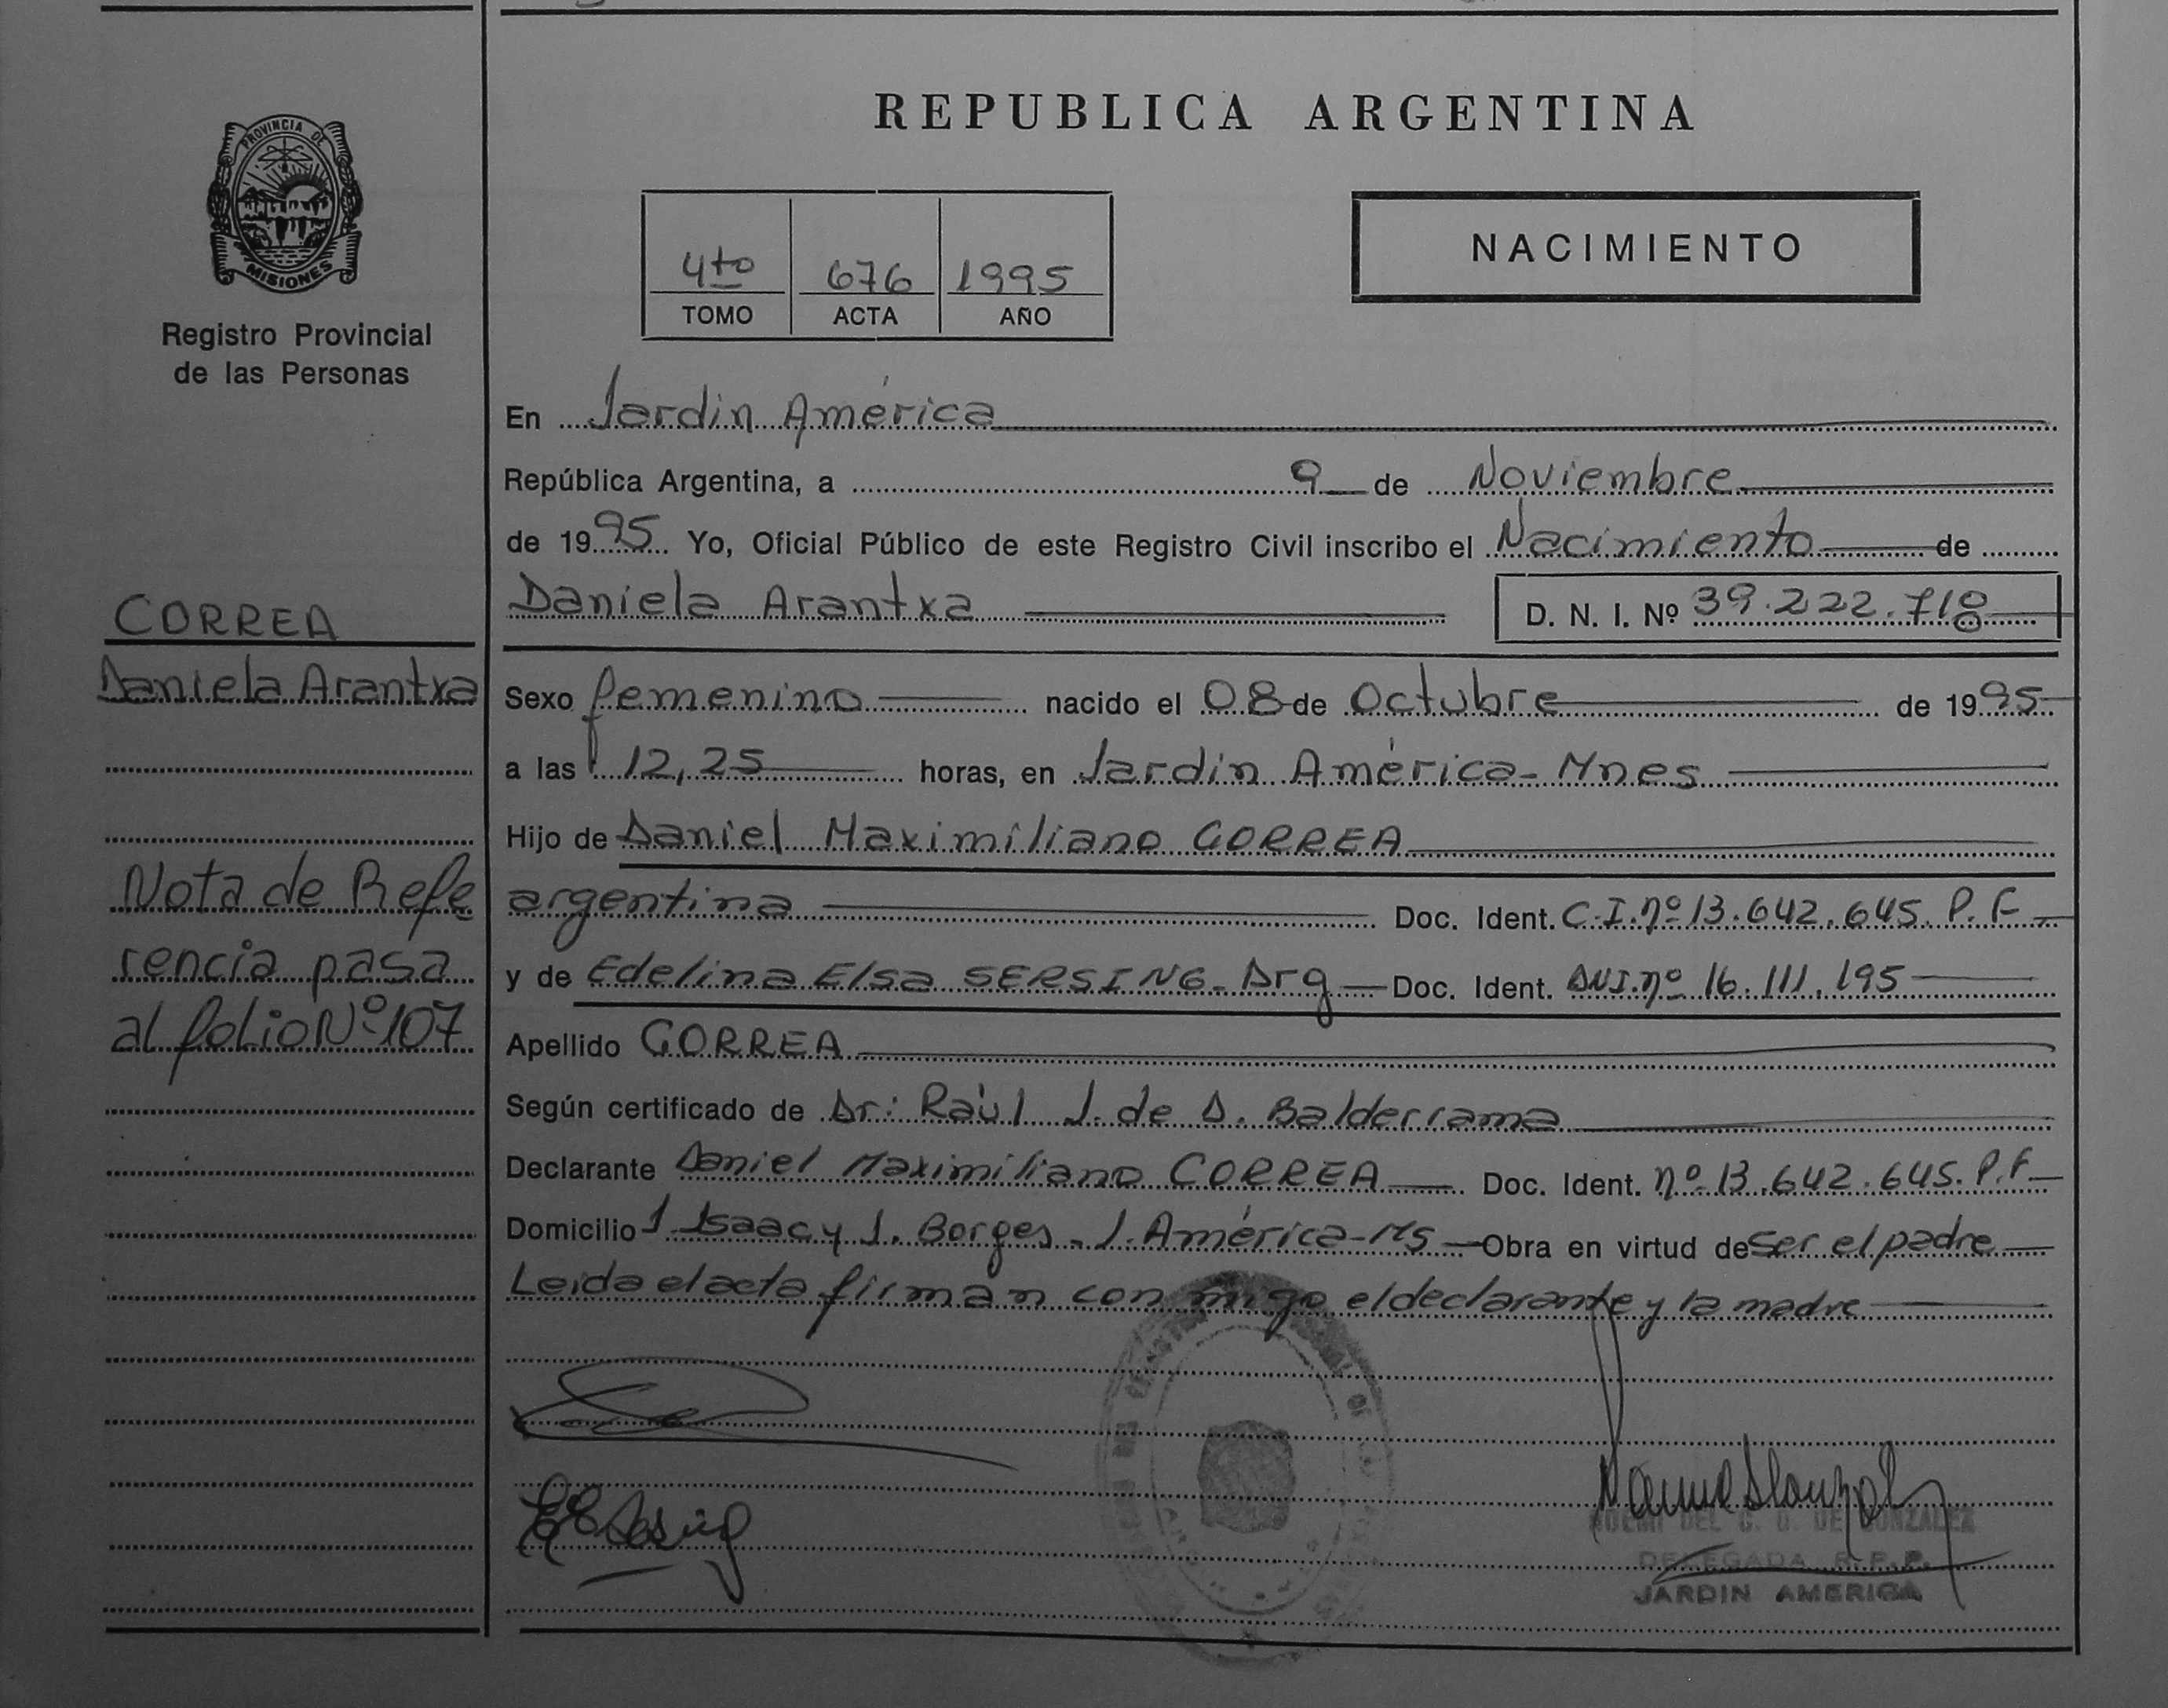 REPUBLICA ARGENTINA
PROVINCIA DE
MISIONES
Registro Provincial
de las Personas
4to 676 1995
TOMO ACTA AÑO
NACIMIENTO
En Jardín América
República Argentina, a 9 de Noviembre
de 1995 Yo, Oficial Público de este Registro Civil inscribo el Nacimiento de
CORREA
Daniela Arantxa
Daniela Arantxa D. N. I. Nº 39.222.718
Sexo femenino nacido el 08 de Octubre de 1995
a las 12,25 horas, en Jardín América - Mnes
Hijo de Daniel Maximiliano CORREA
argentina Doc. Ident. C.I.nº 13.642.645. P. F.
y de Edelina Elsa SERSING - Arg Doc. Ident. DNI.nº 16.111.195
Apellido CORREA
Según certificado de Dr: Raúl J. de D. Balderrama
Declarante Daniel Maximiliano CORREA Doc. Ident. nº 13.642.645. P.F
Domicilio J. Isaac y J. Borges - J. América - Ms Obra en virtud de ser el padre
Leida el acta firman con migo el declarante y la madre
Nota de Refe
rencia pasa
al folio Nº 107
DEL C. G. DE GONZALEZ
DELEGADA R.P.P.
JARDIN AMERICA